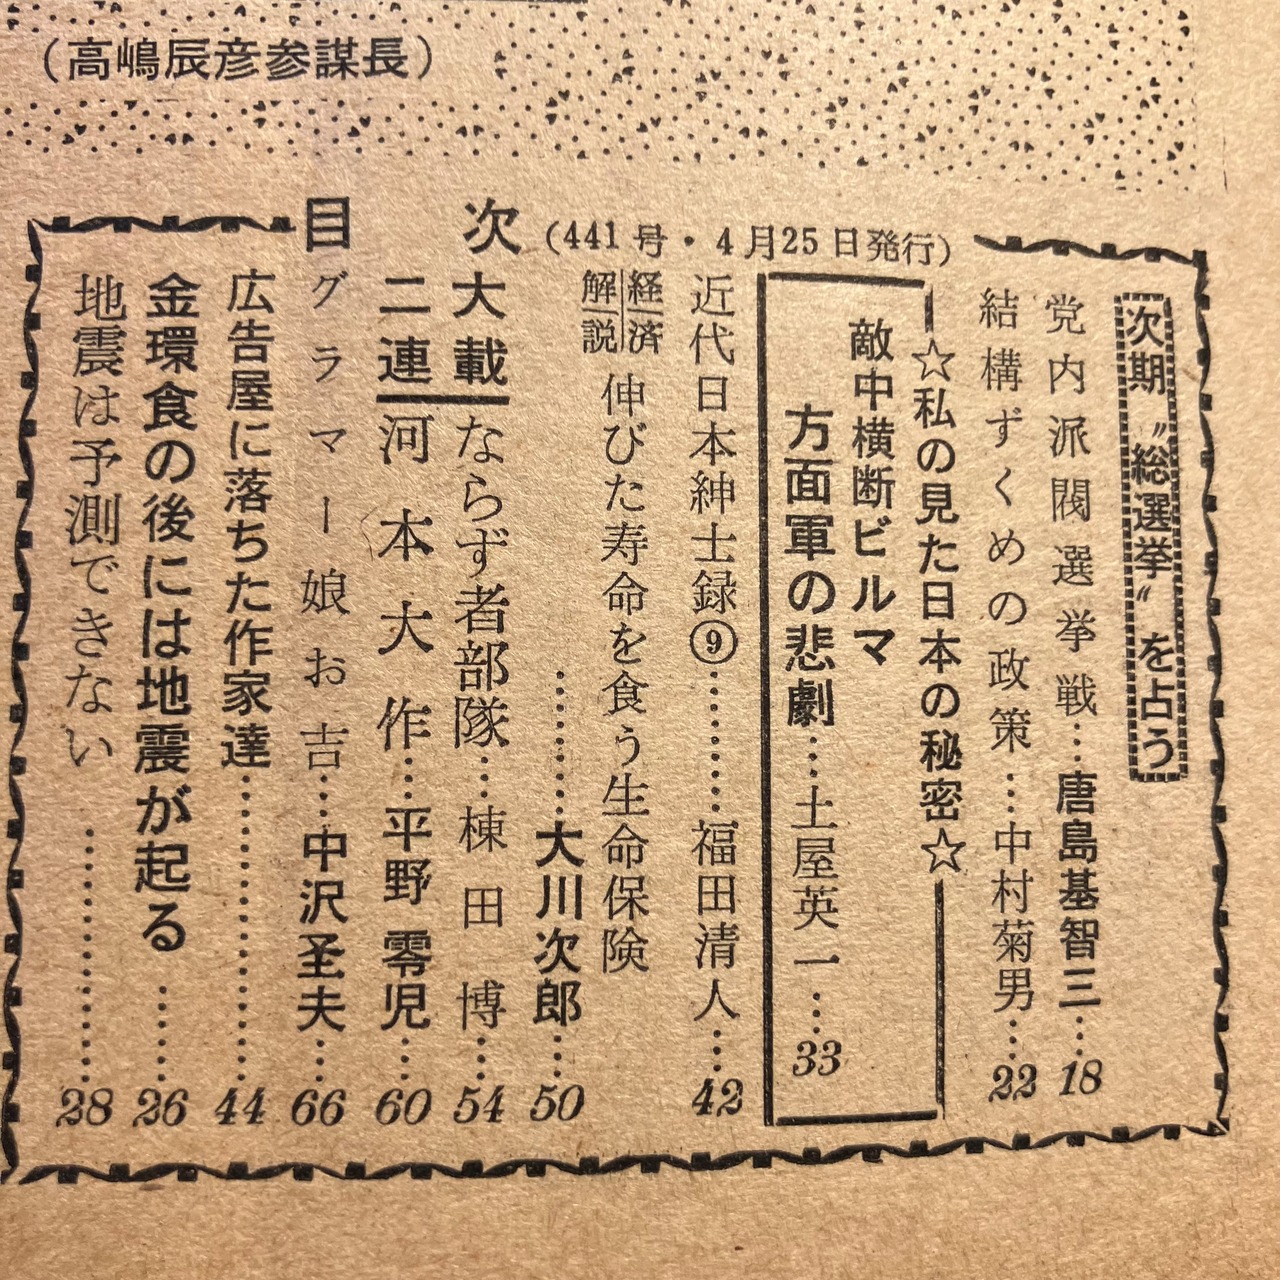 (高嶋辰彦参謀長)
目次(441号・4月25日発行)
次期〝総選挙〟を占う
党内派閥選挙戦…唐島基智三…18
結構ずくめの政策…中村菊男…22
☆私の見た日本の秘密☆
敵中横断ビルマ
方面軍の悲劇…土屋英一…33
近代日本紳士録⑨………福田清人…42
経済解説 伸びた寿命を食う生命保険
………大川次郎…50
二大連載
ならず者部隊…棟田博…54
河本大作…平野零児…60
グラマー娘お吉…中沢圣夫…66
広告屋に落ちた作家達………44
金環食の後には地震が起る…26
地震は予測できない………28